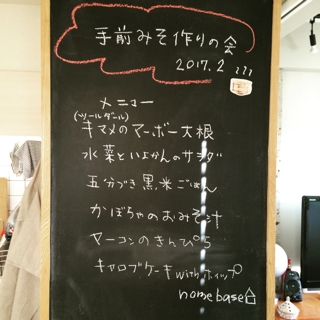 手前みそ作りの会
2017.2
メニュー
(ツールダール)
キマメのマーボー大根
水菜といよかんのサラダ
五分づき黒米ごはん
かぼちゃのおみそ汁
ヤーコンのきんぴら
キャロブケーキwithホイップ
homebase